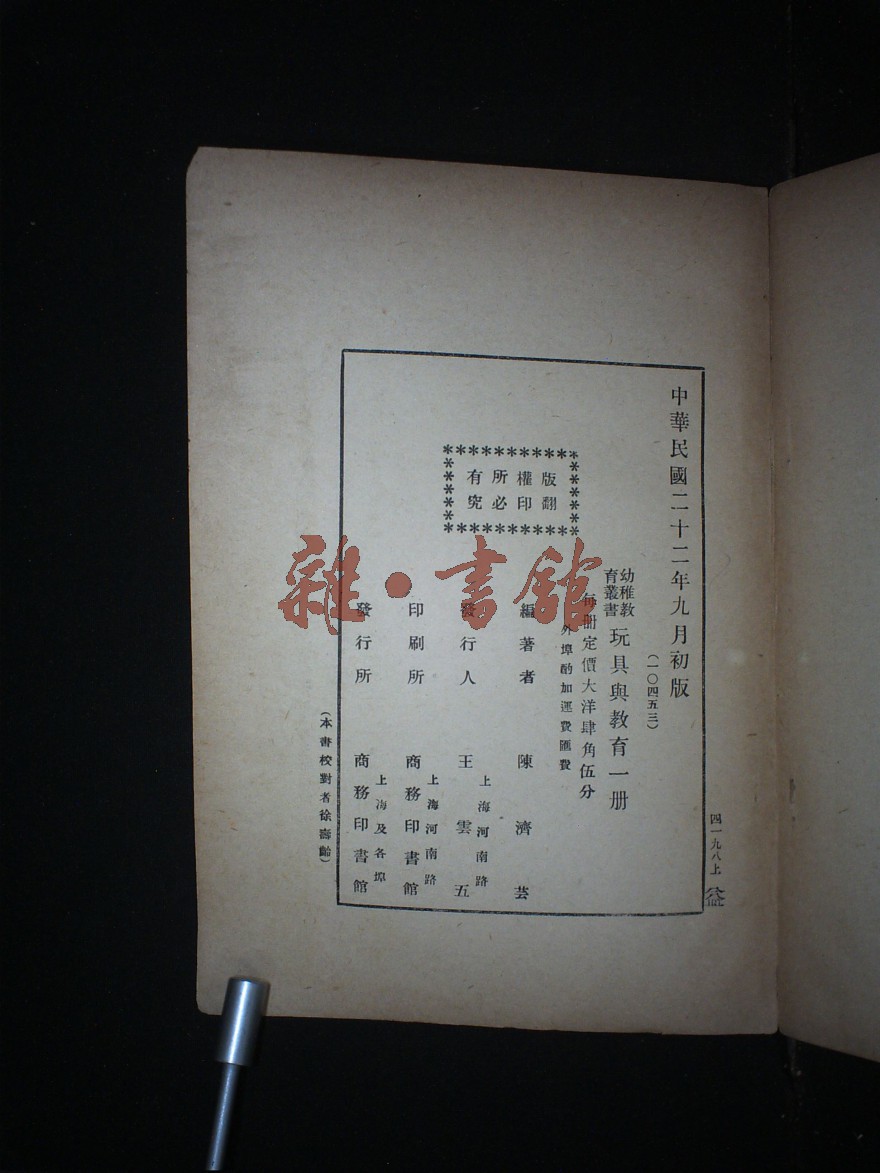 中華民國二十二年九月初版
(一〇四五三)
幼稚教育叢書 玩具與教育一册
每册定價大洋肆角伍分
外埠酌加運費匯費
版權所有
翻印必究
編著者 陳濟芸
發行人 王雲五
上海河南路
印刷所 商務印書館
上海河南路
發行所 商務印書館
上海及各埠
(本書校對者徐壽齡)
四一九八上
雜·書館